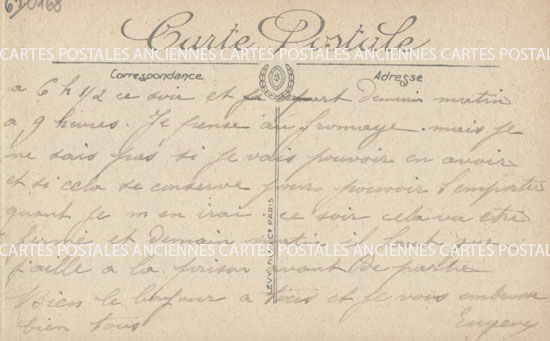 620168
Carte Postale
CARTES POSTALES ANCIENNES CARTES POSTALES ANCIENNES CARTES POSTALES ANCIENNES
Correspondance
Adresse
a 6 h 1/2 ce soir et part demain matin
a 9 heures. Je pense au fromage mais je
ne sais pas si je vais pouvoir en avoir
et si cela se conserve pour pouvoir l'emporter
quant je m en irai. ce soir cela va etre
fermé et demain matin il faut que
j'aille a la prison avant de partir
Bien le bonjour a tous et je vous embrasse
bien tous
Eugene
LEVY FILS & Cie PARIS